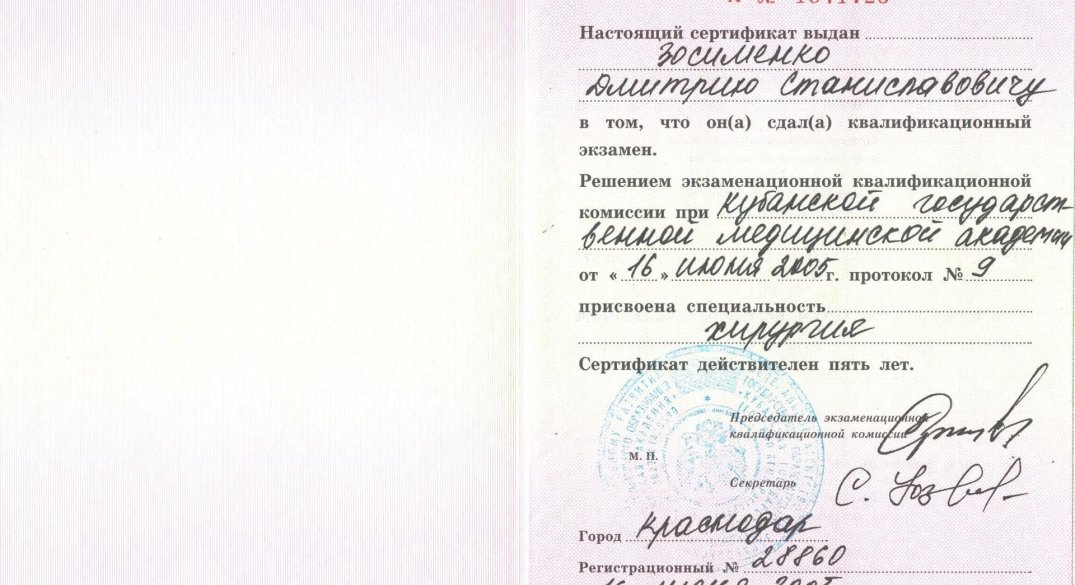 Настоящий сертификат выдан
Зосименко
Дмитрию Станиславовичу
в том, что он(а) сдал(а) квалификационный
экзамен.
Решением экзаменационной квалификационной
комиссии при Кубанской государст-
венной медицинской академии
от «16» июня 2005г. протокол № 9
присвоена специальность
хирургия
Сертификат действителен пять лет.
Председатель экзаменационной
квалификационной комиссии
М. П.
Секретарь
Город Краснодар
Регистрационный № 28860